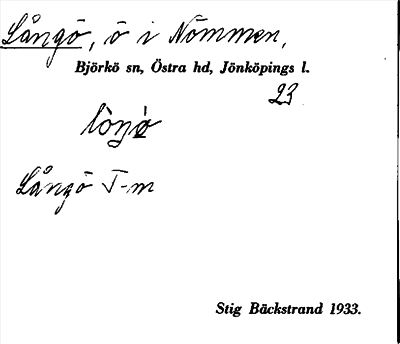 Långö, ö i Nömmen,
Björkö sn, Östra hd, Jönköpings l.
23
Långö T-m
Stig Bäckstrand 1933.